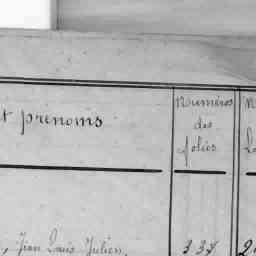 t prénoms
Numéros
des
folios
Jean Louis Julien.
337